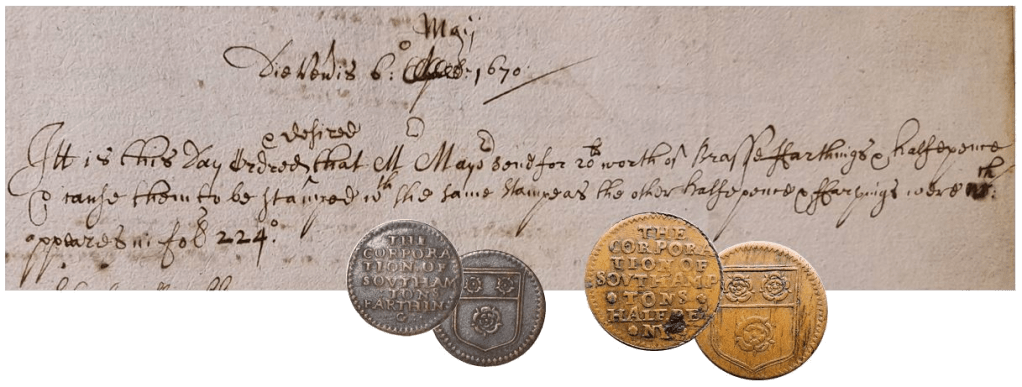 Maij
Die Venis 6:o 1670
& desired
Itt is this Day Ordred that Mr Mayor send for worth of Brasse ffarthings & halfepence
& cause them to be stamped wth the same stampe as the other halfepence & ffarthings were
appeares in fol 224o.
THE
CORPORA
TION OF
SOVTHAM
TONS
FARTHIN
G
THE
CORPORA
TION OF
SOVTHAMP
TONS
HALFE PE
NY